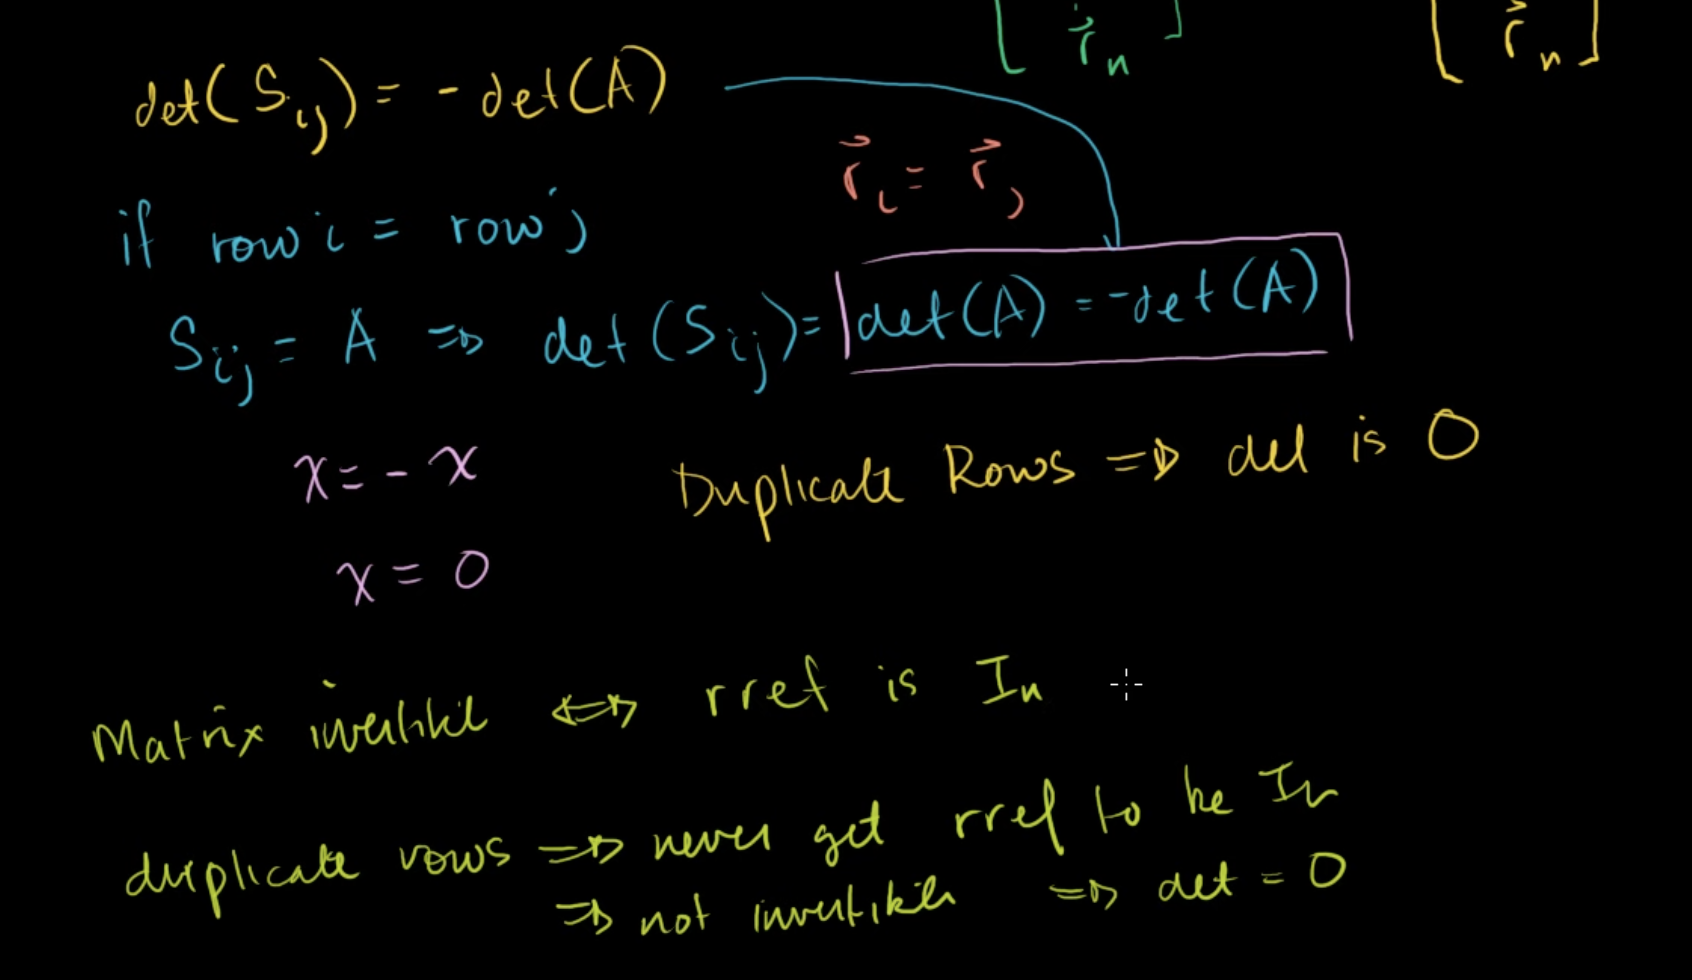 r⃗n r⃗n
det(Sij) = -det(A)
r⃗i = r⃗j
if row i = row j
Sij = A ⇒ det(Sij) = det(A) = -det(A)
x = -x Duplicate Rows ⇒ det is 0
x = 0
Matrix invertible ⇔ rref is In
duplicate rows ⇒ never get rref to be In
⇒ not invertible ⇒ det = 0